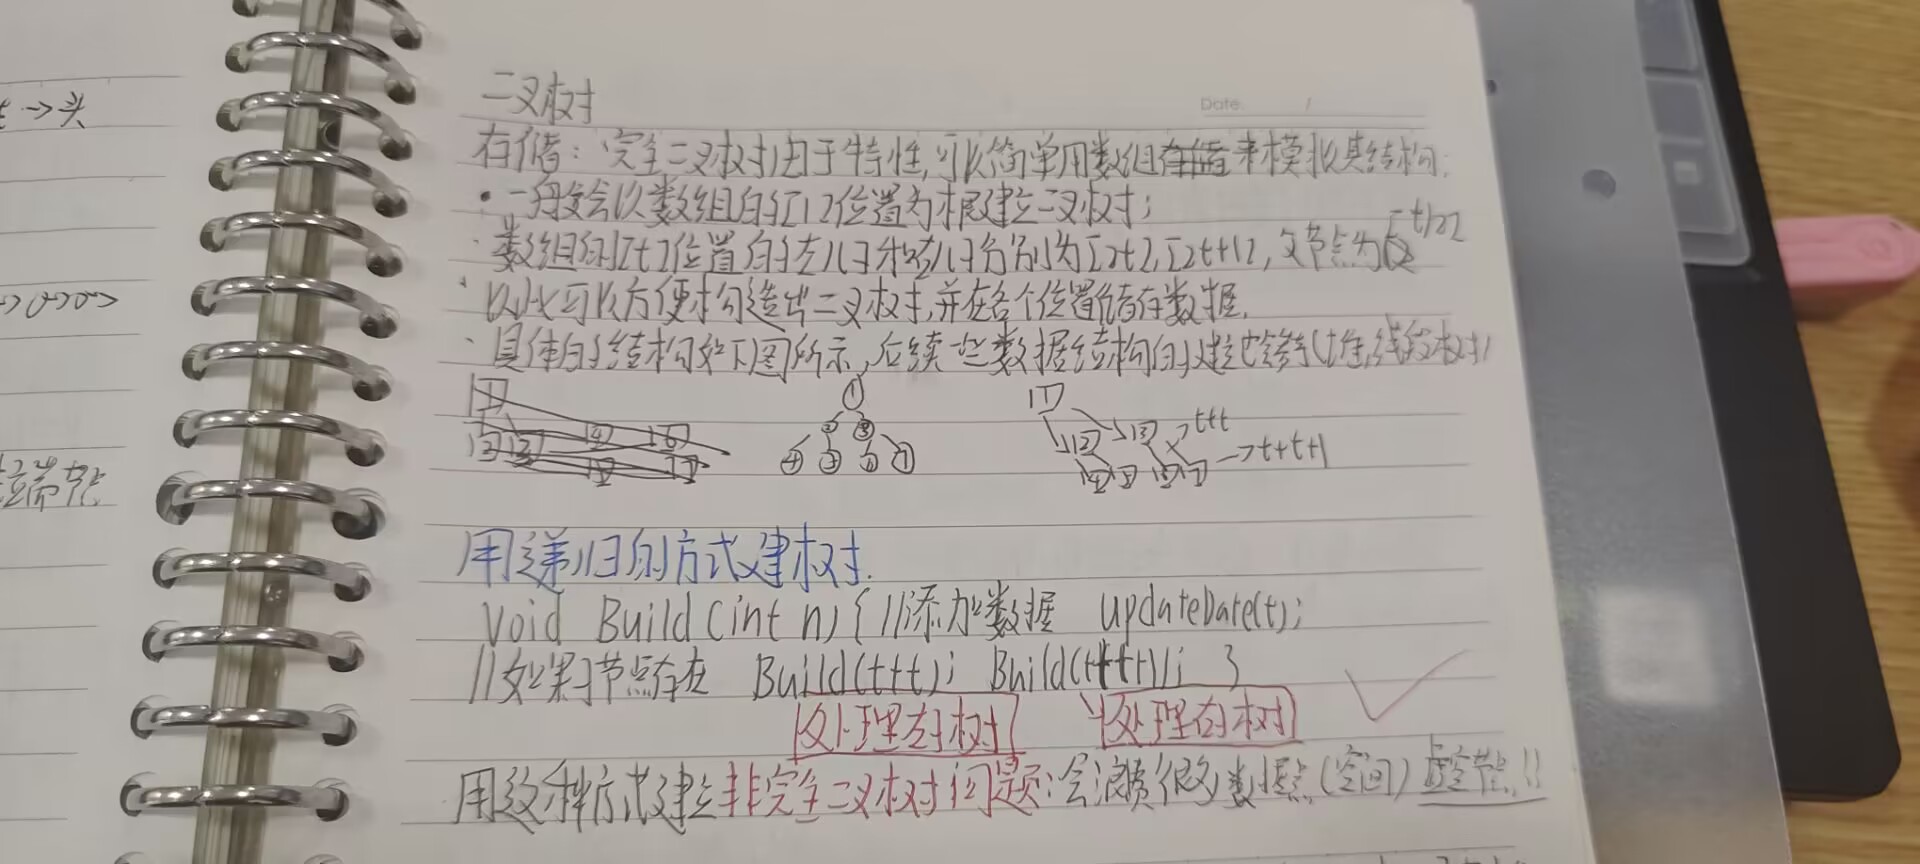 头
Date /
二叉树
存储：完全二叉树由于特性，可以简单用数组来模拟其结构；
·一般会以数组的[1]位置为根建立二叉树；
·数组的[t]位置的左儿子和右儿子分别为[2t],[2t+1],父节点为[t/2]
·以此可以方便构造出二叉树,并在各个位置储存数据.
·具体的结构如下图所示,后续一些数据结构的建也参(堆,线段树)
1 1 1
2 3 4 6 2 3 2 3 t+t
5 7 4 5 6 7 4 5 6 7 →t+t+1
用递归的方式建树.
void Build(int n){//添加数据 updateDate(t);
//如果子节点存在 Build(t+t); Build(t+t+1); }
处理左树 处理右树
用这种方式建立非完全二叉树问题:会浪费很多数据点(空间) 虚空节点!!